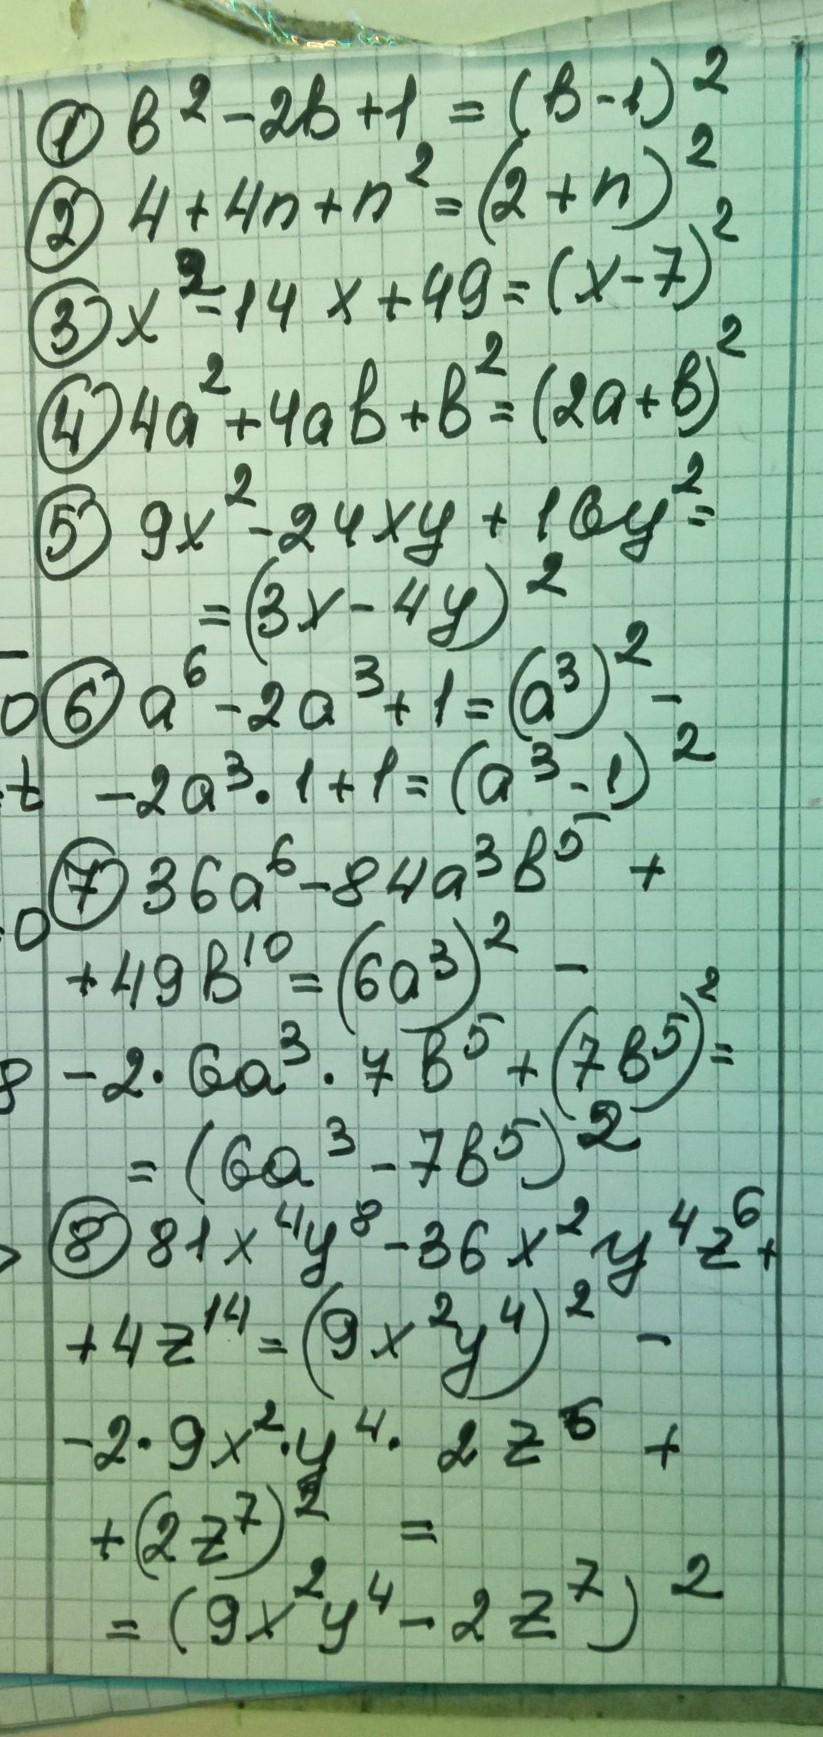 ① b² - 2b + 1 = (b - 1)²
② 4 + 4n + n² = (2 + n)²
③ x² - 14x + 49 = (x - 7)²
④ 4a² + 4ab + b² = (2a + b)²
⑤ 9x² - 24xy + 16y² =
= (3x - 4y)²
⑥ a⁶ - 2a³ + 1 = (a³)² -
- 2a³ · 1 + 1 = (a³ - 1)²
⑦ 36a⁶ - 84a³b⁵ +
+ 49b¹⁰ = (6a³)² -
- 2 · 6a³ · 7b⁵ + (7b⁵)² =
= (6a³ - 7b⁵)²
⑧ 81x⁴y⁸ - 36x²y⁴z⁶ +
+ 4z¹⁴ = (9x²y⁴)² -
- 2 · 9x² · y⁴ · 2z⁶ +
+ (2z⁷)² =
= (9x²y⁴ - 2z⁷)²